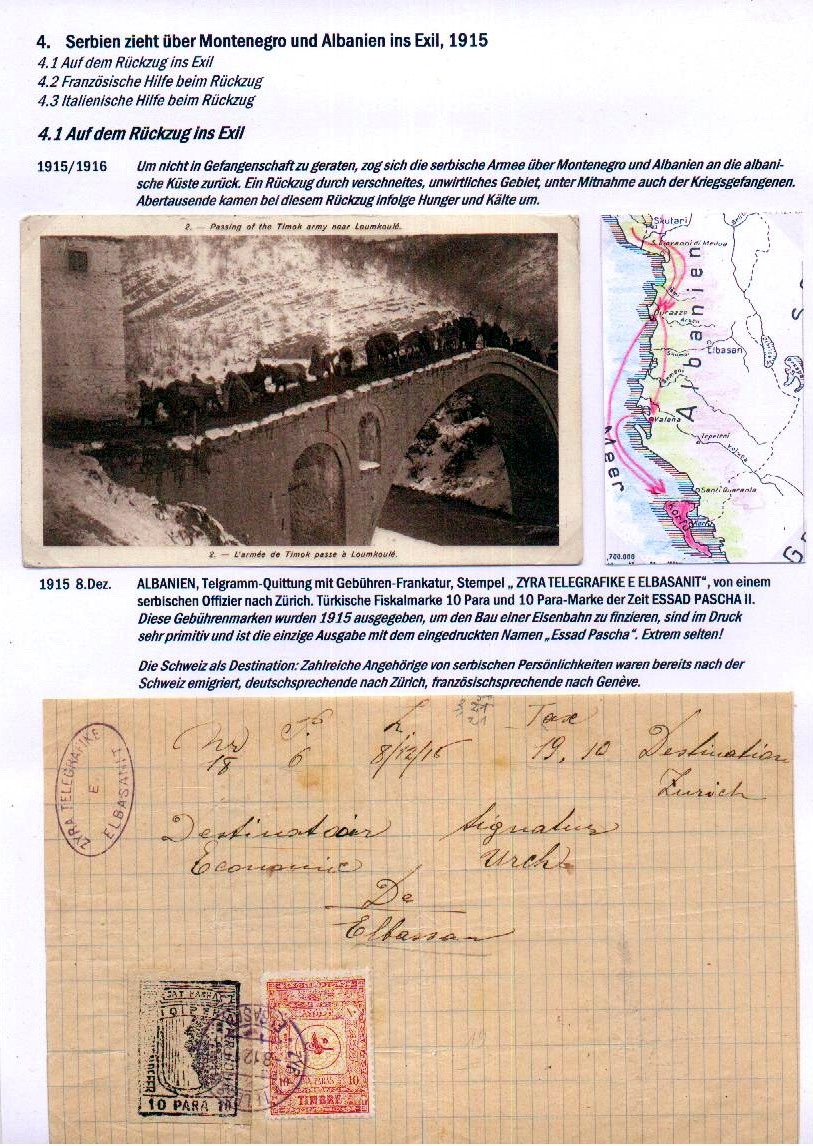 4. Serbien zieht über Montenegro und Albanien ins Exil, 1915
4.1 Auf dem Rückzug ins Exil
4.2 Französische Hilfe beim Rückzug
4.3 Italienische Hilfe beim Rückzug
4.1 Auf dem Rückzug ins Exil
1915/1916 Um nicht in Gefangenschaft zu geraten, zog sich die serbische Armee über Montenegro und Albanien an die albani-
sche Küste zurück. Ein Rückzug durch verschneites, unwirtliches Gebiet, unter Mitnahme auch der Kriegsgefangenen.
Abertausende kamen bei diesem Rückzug infolge Hunger und Kälte um.
2. — Passing of the Timok army near Loumkoulé.
2. — L'armée de Timok passe à Loumkoulé.
Skutari
S. Giovanni di Medua
Durazzo
Elbasan
Albanien
Valona
Tepeleni
Santi Quaranta
Korfu
1915 8.Dez. ALBANIEN, Telgramm-Quittung mit Gebühren-Frankatur, Stempel „ ZYRA TELEGRAFIKE E ELBASANIT", von einem
serbischen Offizier nach Zürich. Türkische Fiskalmarke 10 Para und 10 Para-Marke der Zeit ESSAD PASCHA II.
Diese Gebührenmarken wurden 1915 ausgegeben, um den Bau einer Eisenbahn zu finzieren, sind im Druck
sehr primitiv und ist die einzige Ausgabe mit dem eingedruckten Namen „Essad Pascha". Extrem selten!
Die Schweiz als Destination: Zahlreiche Angehörige von serbischen Persönlichkeiten waren bereits nach der
Schweiz emigriert, deutschsprechende nach Zürich, französischsprechende nach Genève.
ZYRA TELEGRAFIKE
E
ELBASANIT
Nr Tax
18 6 8/12/15 19.10 Destination
Zurich
Destinatair Signatur
Economic
De
Elbassan
10 PARA 10
10 PARAS 10
TIMBRE